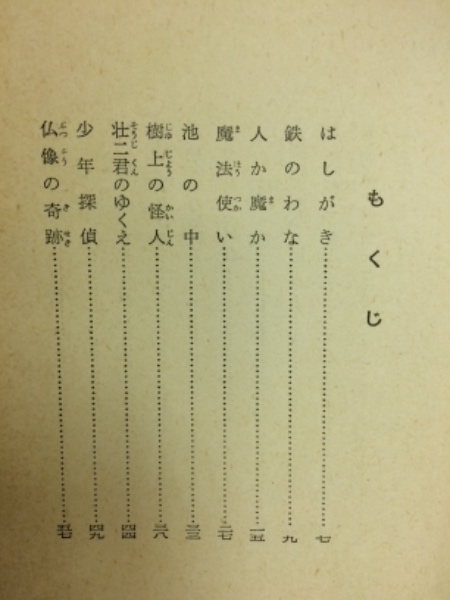 もくじ
はしがき……………七
鉄のわな……………九
人か魔か……………一五
魔法使い……………二七
池の中……………三三
樹上の怪人……………三八
壮二君のゆくえ……………四四
少年探偵……………四九
仏像の奇跡……………五七